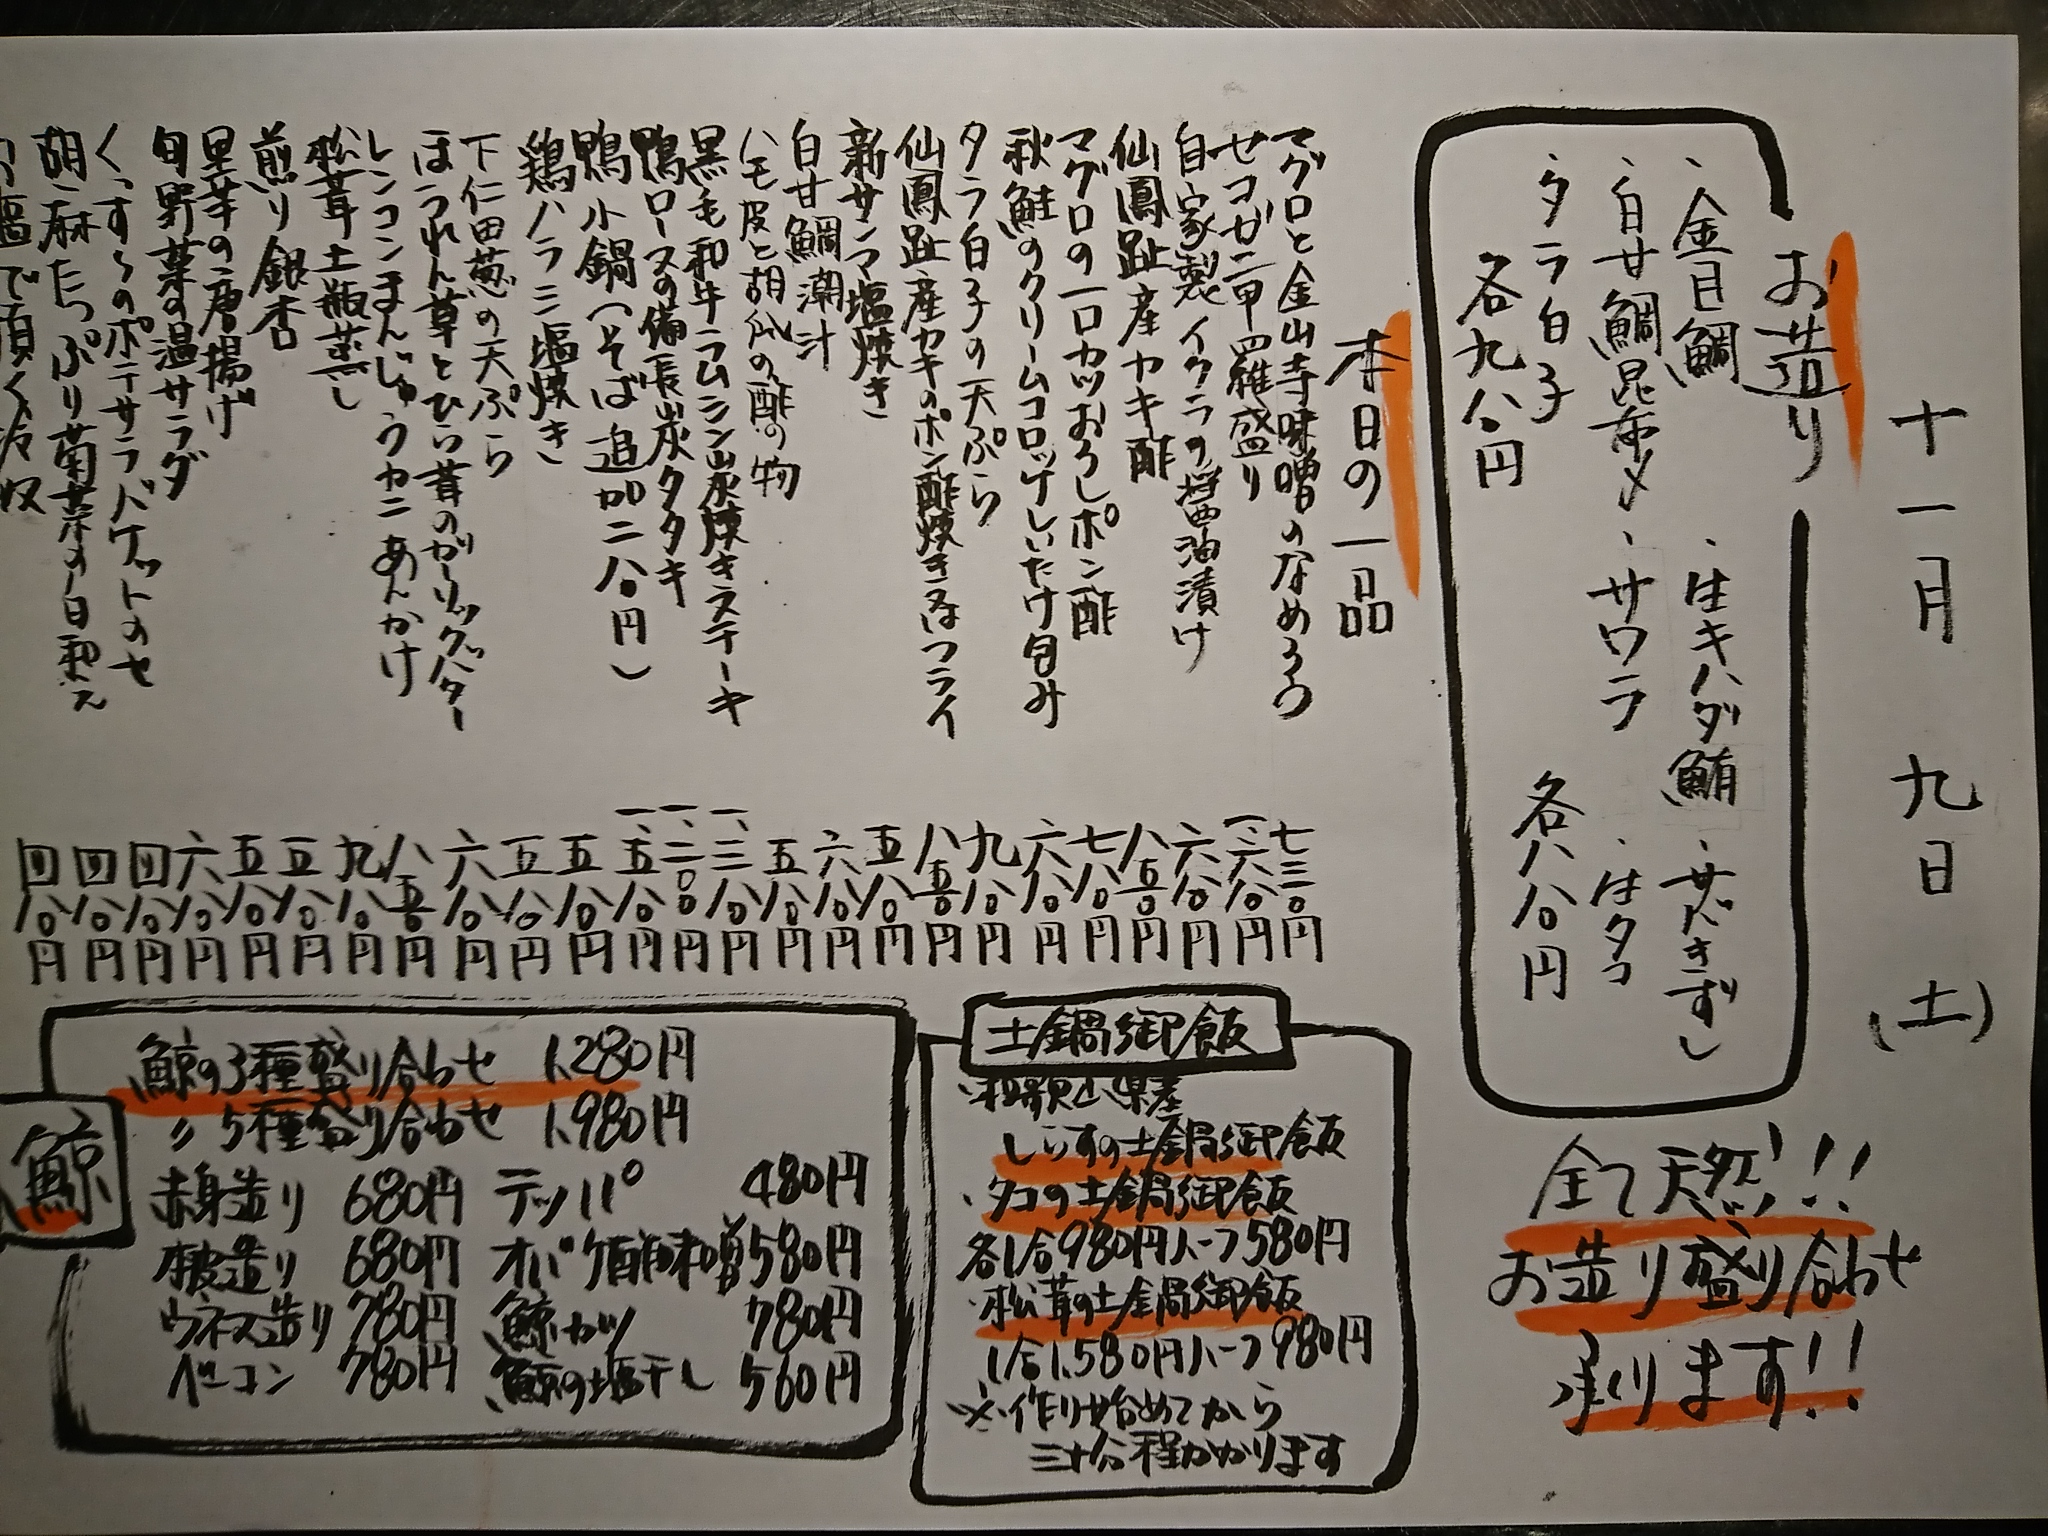 十一月 九日(土)
お造り
・金目鯛 ・生キハダ鮪 ・サバきずし
・白甘鯛昆布〆 ・サワラ ・生タコ
・タラ白子
各九八〇円 各八八〇円
全て天然!!
お造り盛り合わせ
承ります!!
本日の一品
マグロと金山寺味噌のなめろう 七三〇円
セコガニ甲羅盛り 一、六八〇円
自家製イクラの醤油漬け 六八〇円
仙鳳趾産カキ酢 八五〇円
マグロの一口カツおろしポン酢 七八〇円
秋鮭のクリームコロッケしいたけ包み 六八〇円
タラ白子の天ぷら 九八〇円
仙鳳趾産カキのポン酢焼き又はフライ 八五〇円
新サンマ塩焼き 五八〇円
白甘鯛潮汁 六八〇円
ハモ皮と胡瓜の酢の物 五八〇円
黒毛和牛ラムシン炭焼きステーキ 一、三八〇円
鴨ロースの備長炭タタキ 一、二〇〇円
鴨小鍋(そば追加二八〇円) 一、五八〇円
鶏ハラミ塩焼き 五八〇円
下仁田葱の天ぷら 五八〇円
ほうれん草とひら茸のガーリックバター 六八〇円
レンコンまんじゅうカニあんかけ 八五〇円
松茸土瓶蒸し 九八〇円
煎り銀杏 五八〇円
里芋の唐揚げ 五八〇円
旬野菜の温サラダ 六八〇円
くっすぅのポテサラバケットのせ 四八〇円
胡麻たっぷり菊菜の白和え 四八〇円
塩で頂く 四八〇円
土鍋御飯
・和歌山県産
しらすの土鍋御飯
・タコの土鍋御飯
各1合980円ハーフ580円
・松茸の土鍋御飯
1合1,580円ハーフ980円
※作り始めてから
三十分程かかります
鯨
鯨の3種盛り合わせ 1,280円
〃5種盛り合わせ 1,980円
赤身造り 680円 テッパ 480円
本皮造り 680円 オバケ酢味噌 580円
ウネス造り 780円 鯨カツ 780円
ベーコン 780円 鯨の塩干し 560円